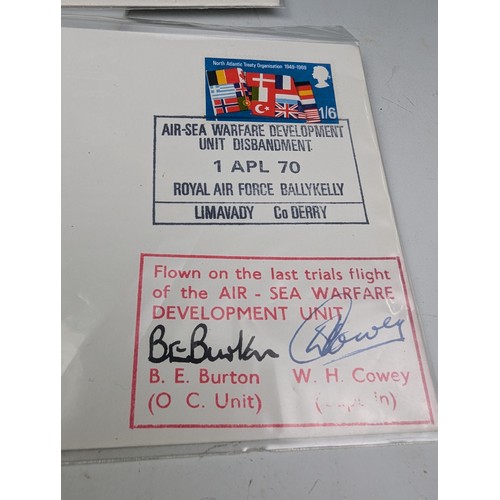 North Atlantic Treaty Organisation 1949-1969
1/6
AIR-SEA WARFARE DEVELOPMENT
UNIT DISBANDMENT
1 APL 70
ROYAL AIR FORCE BALLYKELLY
LIMAVADY Co DERRY
Flown on the last trials flight
of the AIR - SEA WARFARE
DEVELOPMENT UNIT
B E Burton WCowey
B. E. Burton W. H. Cowey
(O C. Unit)